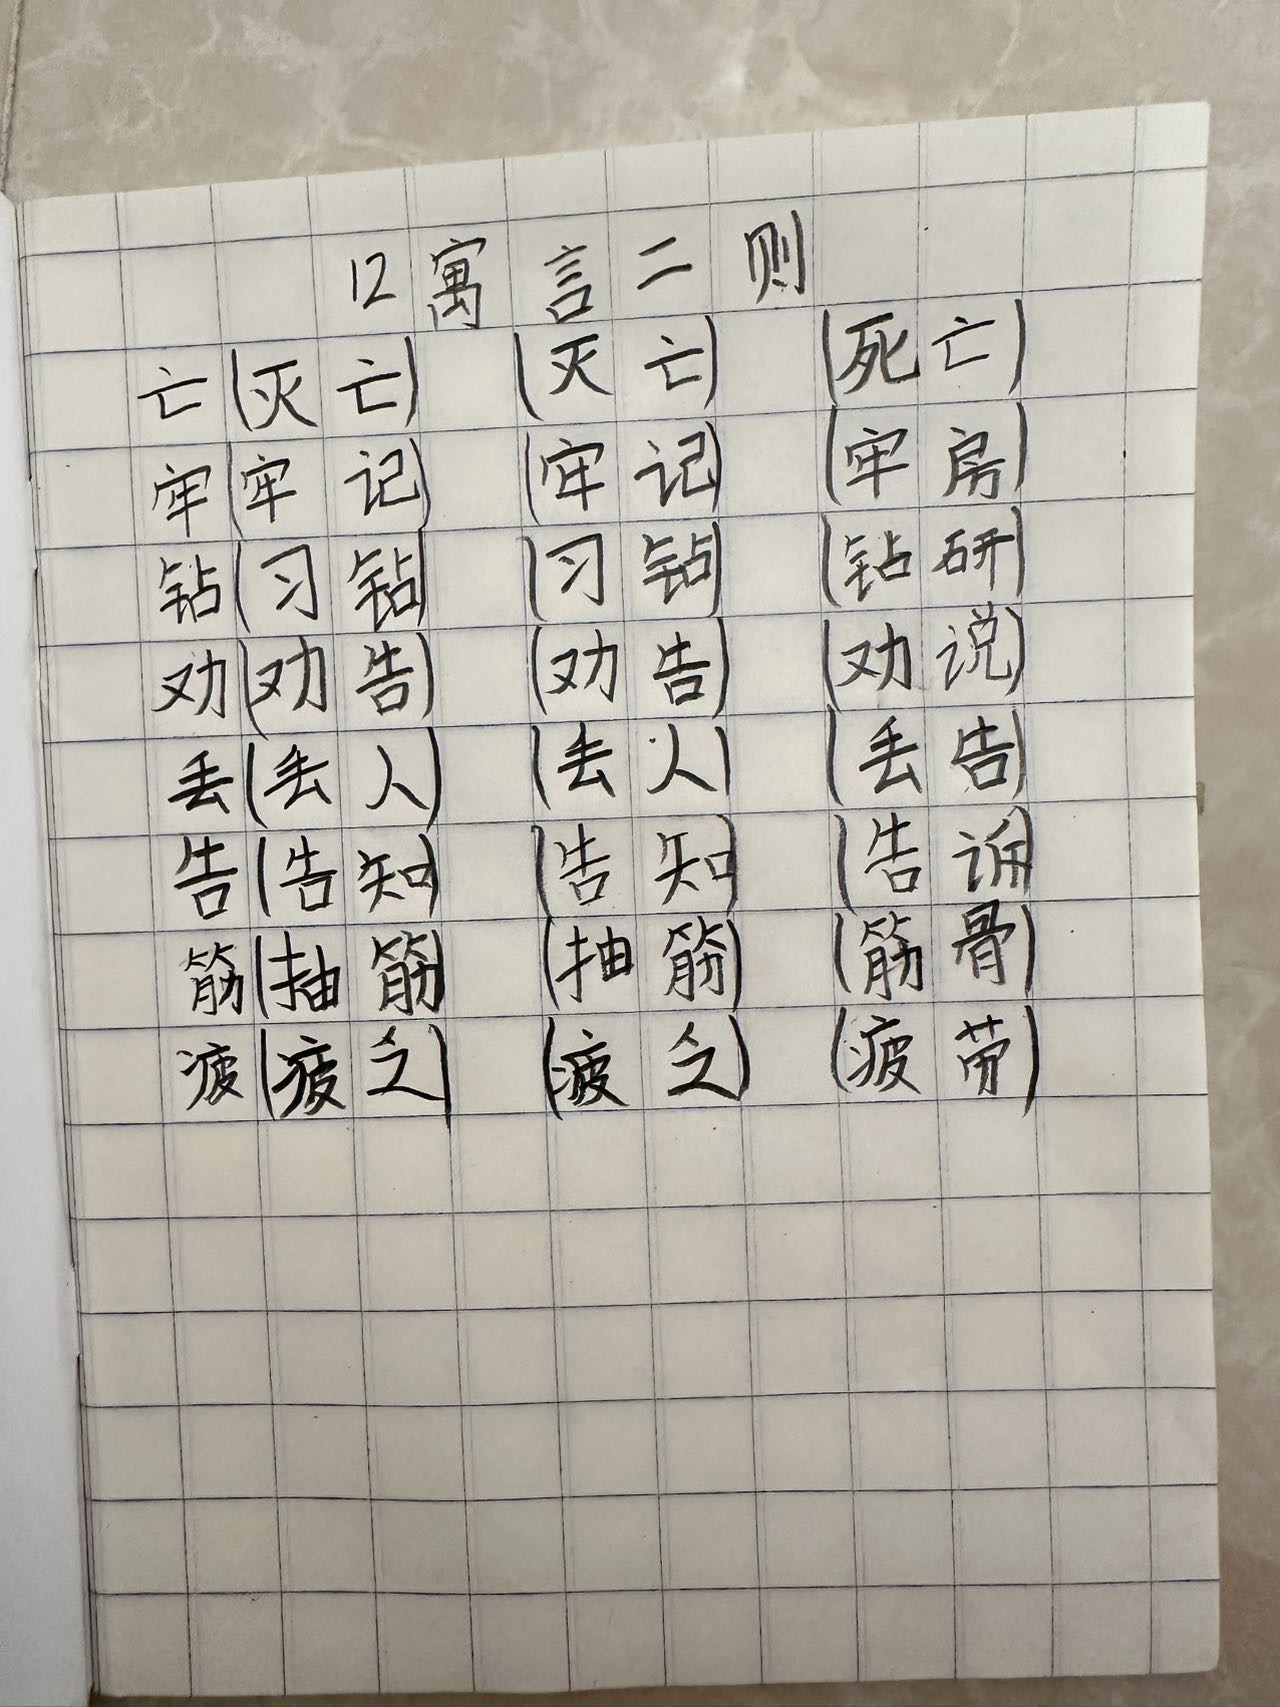 12寓言二则
亡(灭亡) (灭亡) (死亡)
牢(牢记) (牢记) (牢房)
钻(习钻) (习钻) (钻研)
劝(劝告) (劝告) (劝说)
丢(丢人) (丢人) (丢告)
告(告知) (告知) (告诵)
筋(抽筋) (抽筋) (筋骨)
疲(疲乏) (疲乏) (疲劳)